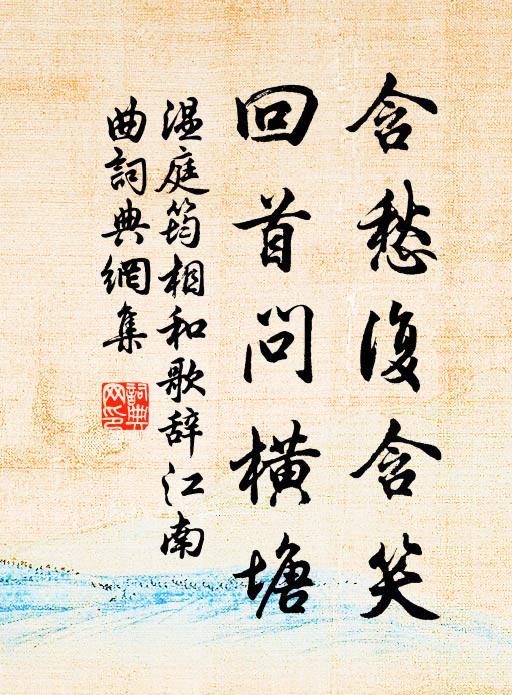 含愁復含笑
回首問橫塘
温庭筠相和歌辞江南
曲詞典網集
詞典
网印